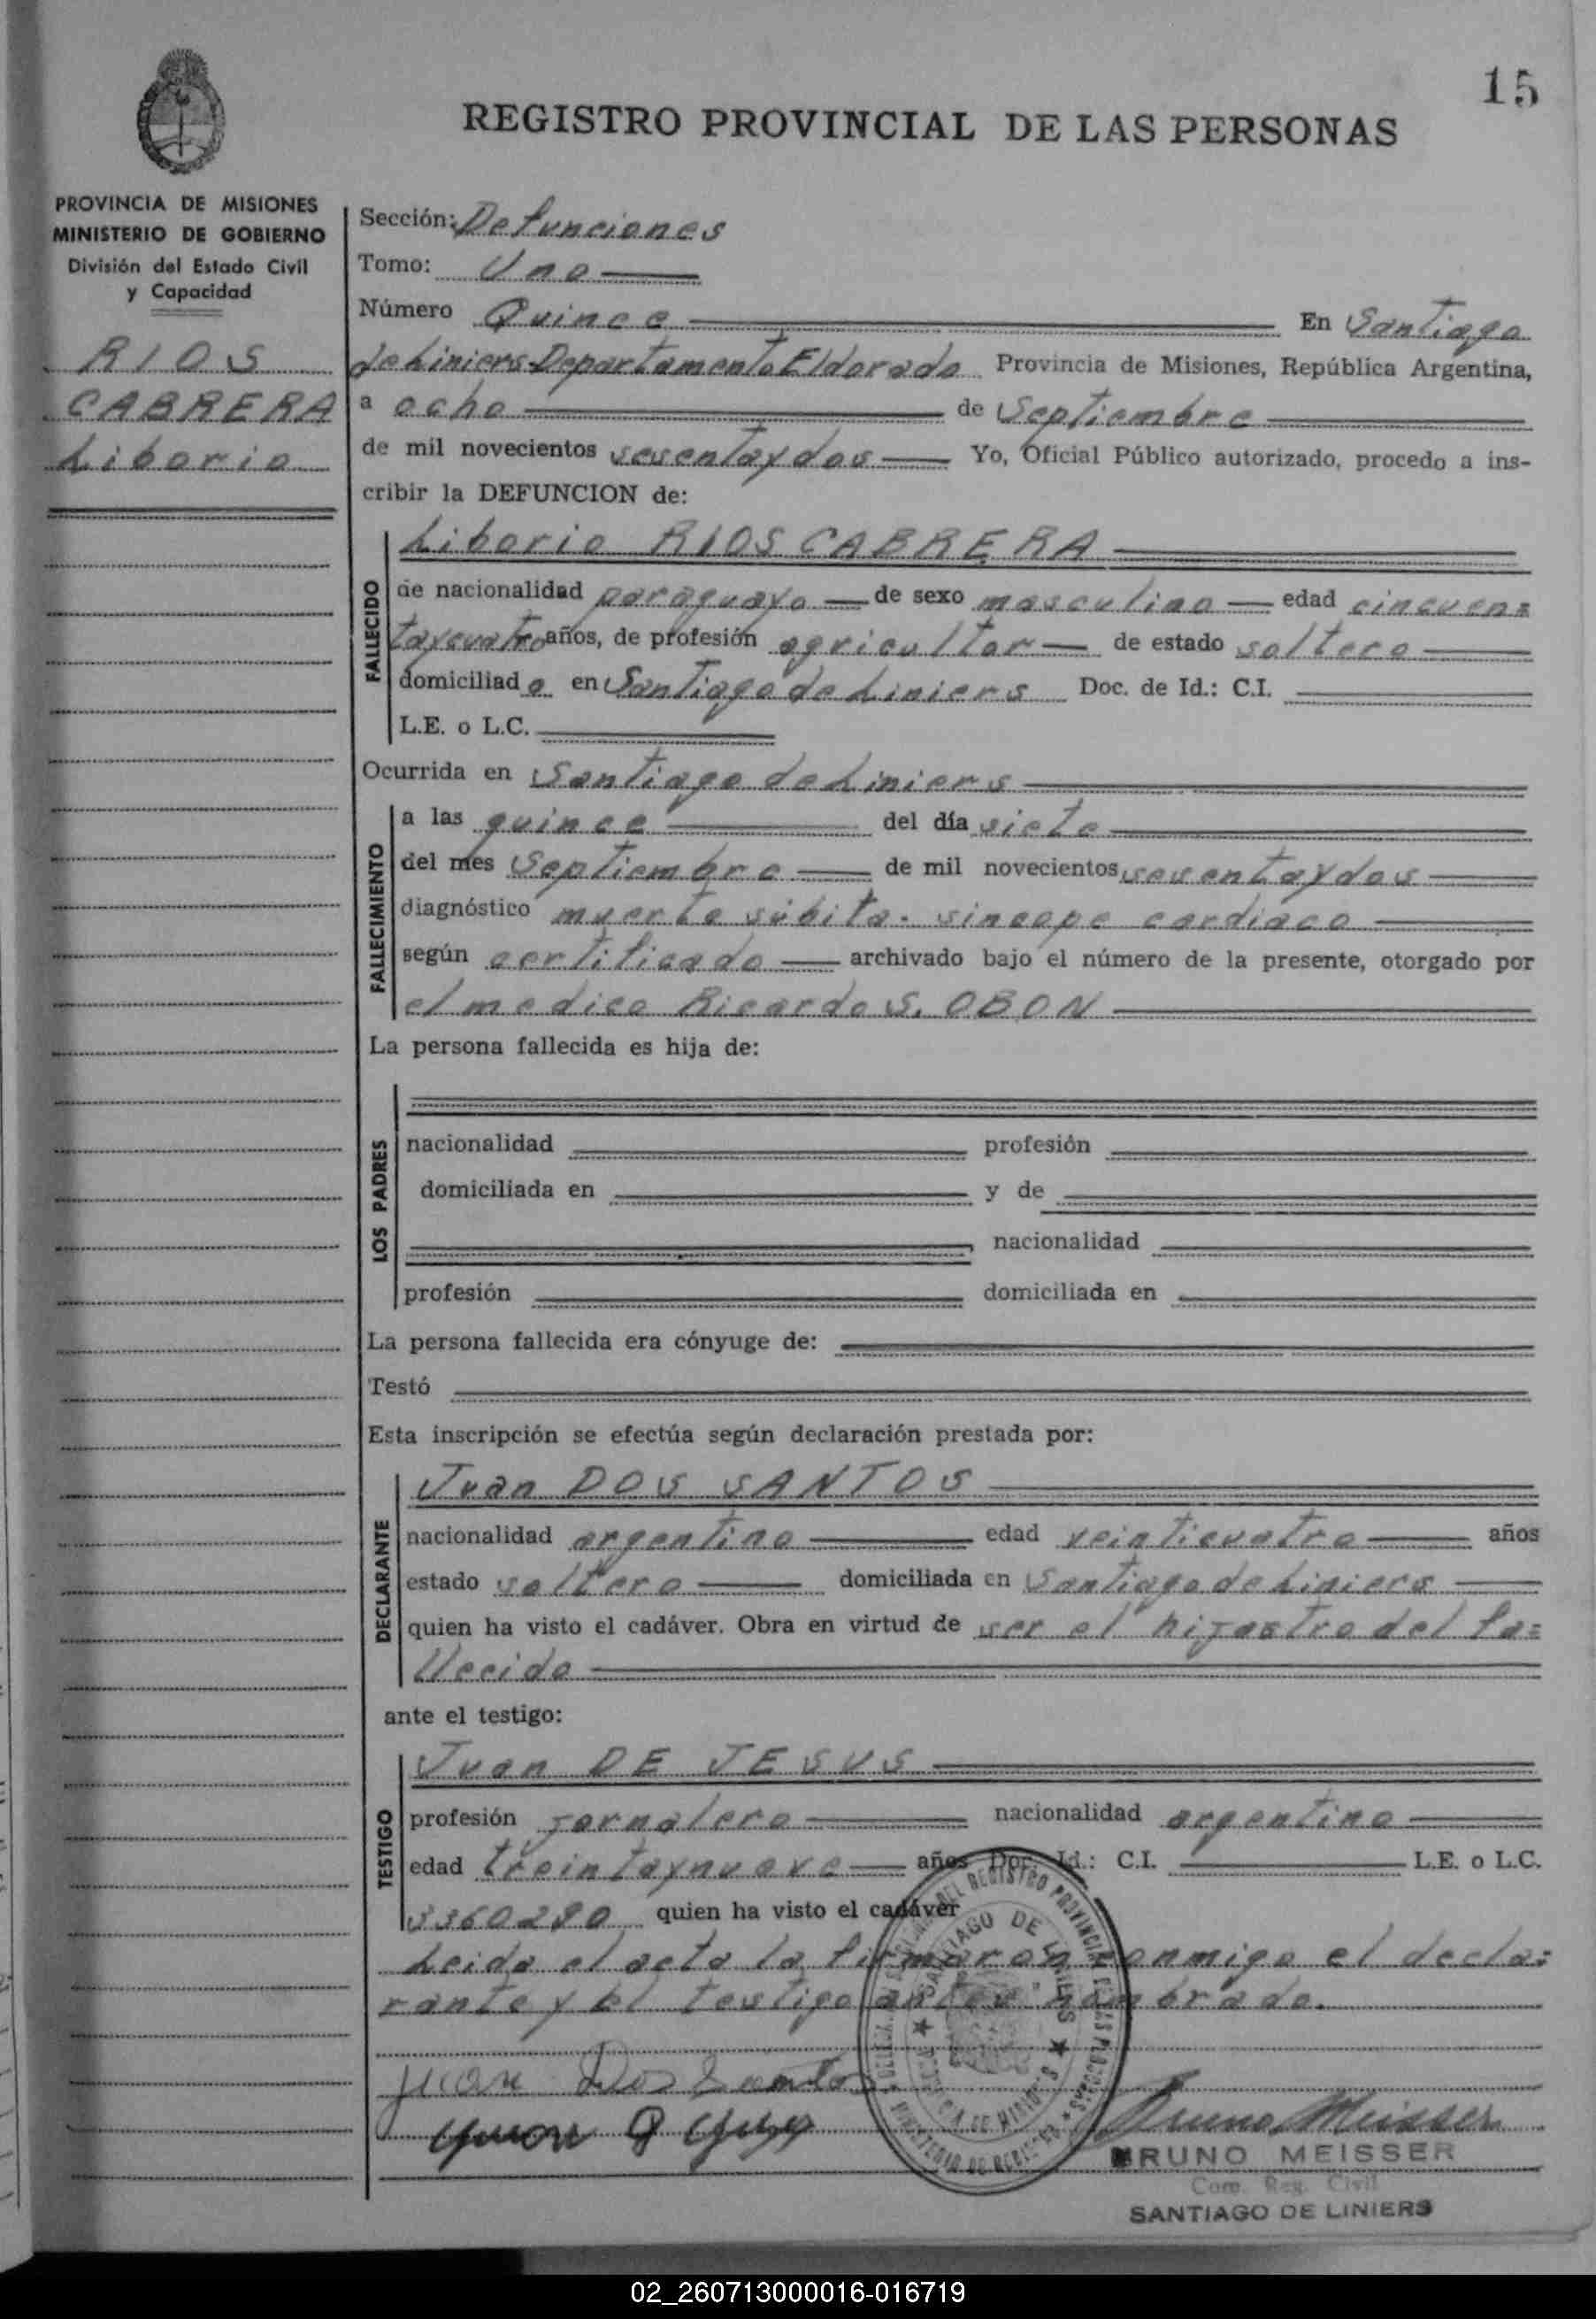 15
REGISTRO PROVINCIAL DE LAS PERSONAS
PROVINCIA DE MISIONES
MINISTERIO DE GOBIERNO
División del Estado Civil
y Capacidad
RIOS
CABRERA
Liborio
Sección: Defunciones
Tomo: Uno
Número Quince En Santiago
de Liniers Departamento Eldorado Provincia de Misiones, República Argentina,
a ocho de Septiembre
de mil novecientos sesentaydos Yo, Oficial Público autorizado, procedo a ins-
cribir la DEFUNCION de:
FALLECIDO
Liborio RIOS CABRERA
de nacionalidad paraguayo de sexo masculino edad cincuen=
taycuatro años, de profesión agricultor de estado soltero
domiciliado en Santiago de Liniers Doc. de Id.: C.I.
L.E. o L.C.
Ocurrida en Santiago de Liniers
FALLECIMIENTO
a las quince del día siete
del mes Septiembre de mil novecientos sesentaydos
diagnóstico muerte súbita. sincope cardiaco
según certificado archivado bajo el número de la presente, otorgado por
el medico Ricardo S. OBON
La persona fallecida es hija de:
LOS PADRES
nacionalidad profesión
domiciliada en y de
nacionalidad
profesión domiciliada en
La persona fallecida era cónyuge de:
Testó
Esta inscripción se efectúa según declaración prestada por:
DECLARANTE
Juan DOS SANTOS
nacionalidad argentino edad veinticuatro años
estado soltero domiciliada en Santiago de Liniers
quien ha visto el cadáver. Obra en virtud de ser el hijastro del fa=
llecido
ante el testigo:
TESTIGO
Juan DE JESUS
profesión jornalero nacionalidad argentino
edad treintaynueve años Doc. Id.: C.I. L.E. o L.C.
3360280 quien ha visto el cadáver
Leida el acta la firmaron conmigo el decla=
rante y el testigo antes nombrado.
SANTIAGO DE LINIERS
Juan Dos Santos
Bruno Meisser
BRUNO MEISSER
Com. Reg. Civil
SANTIAGO DE LINIERS
02_260713000016-016719